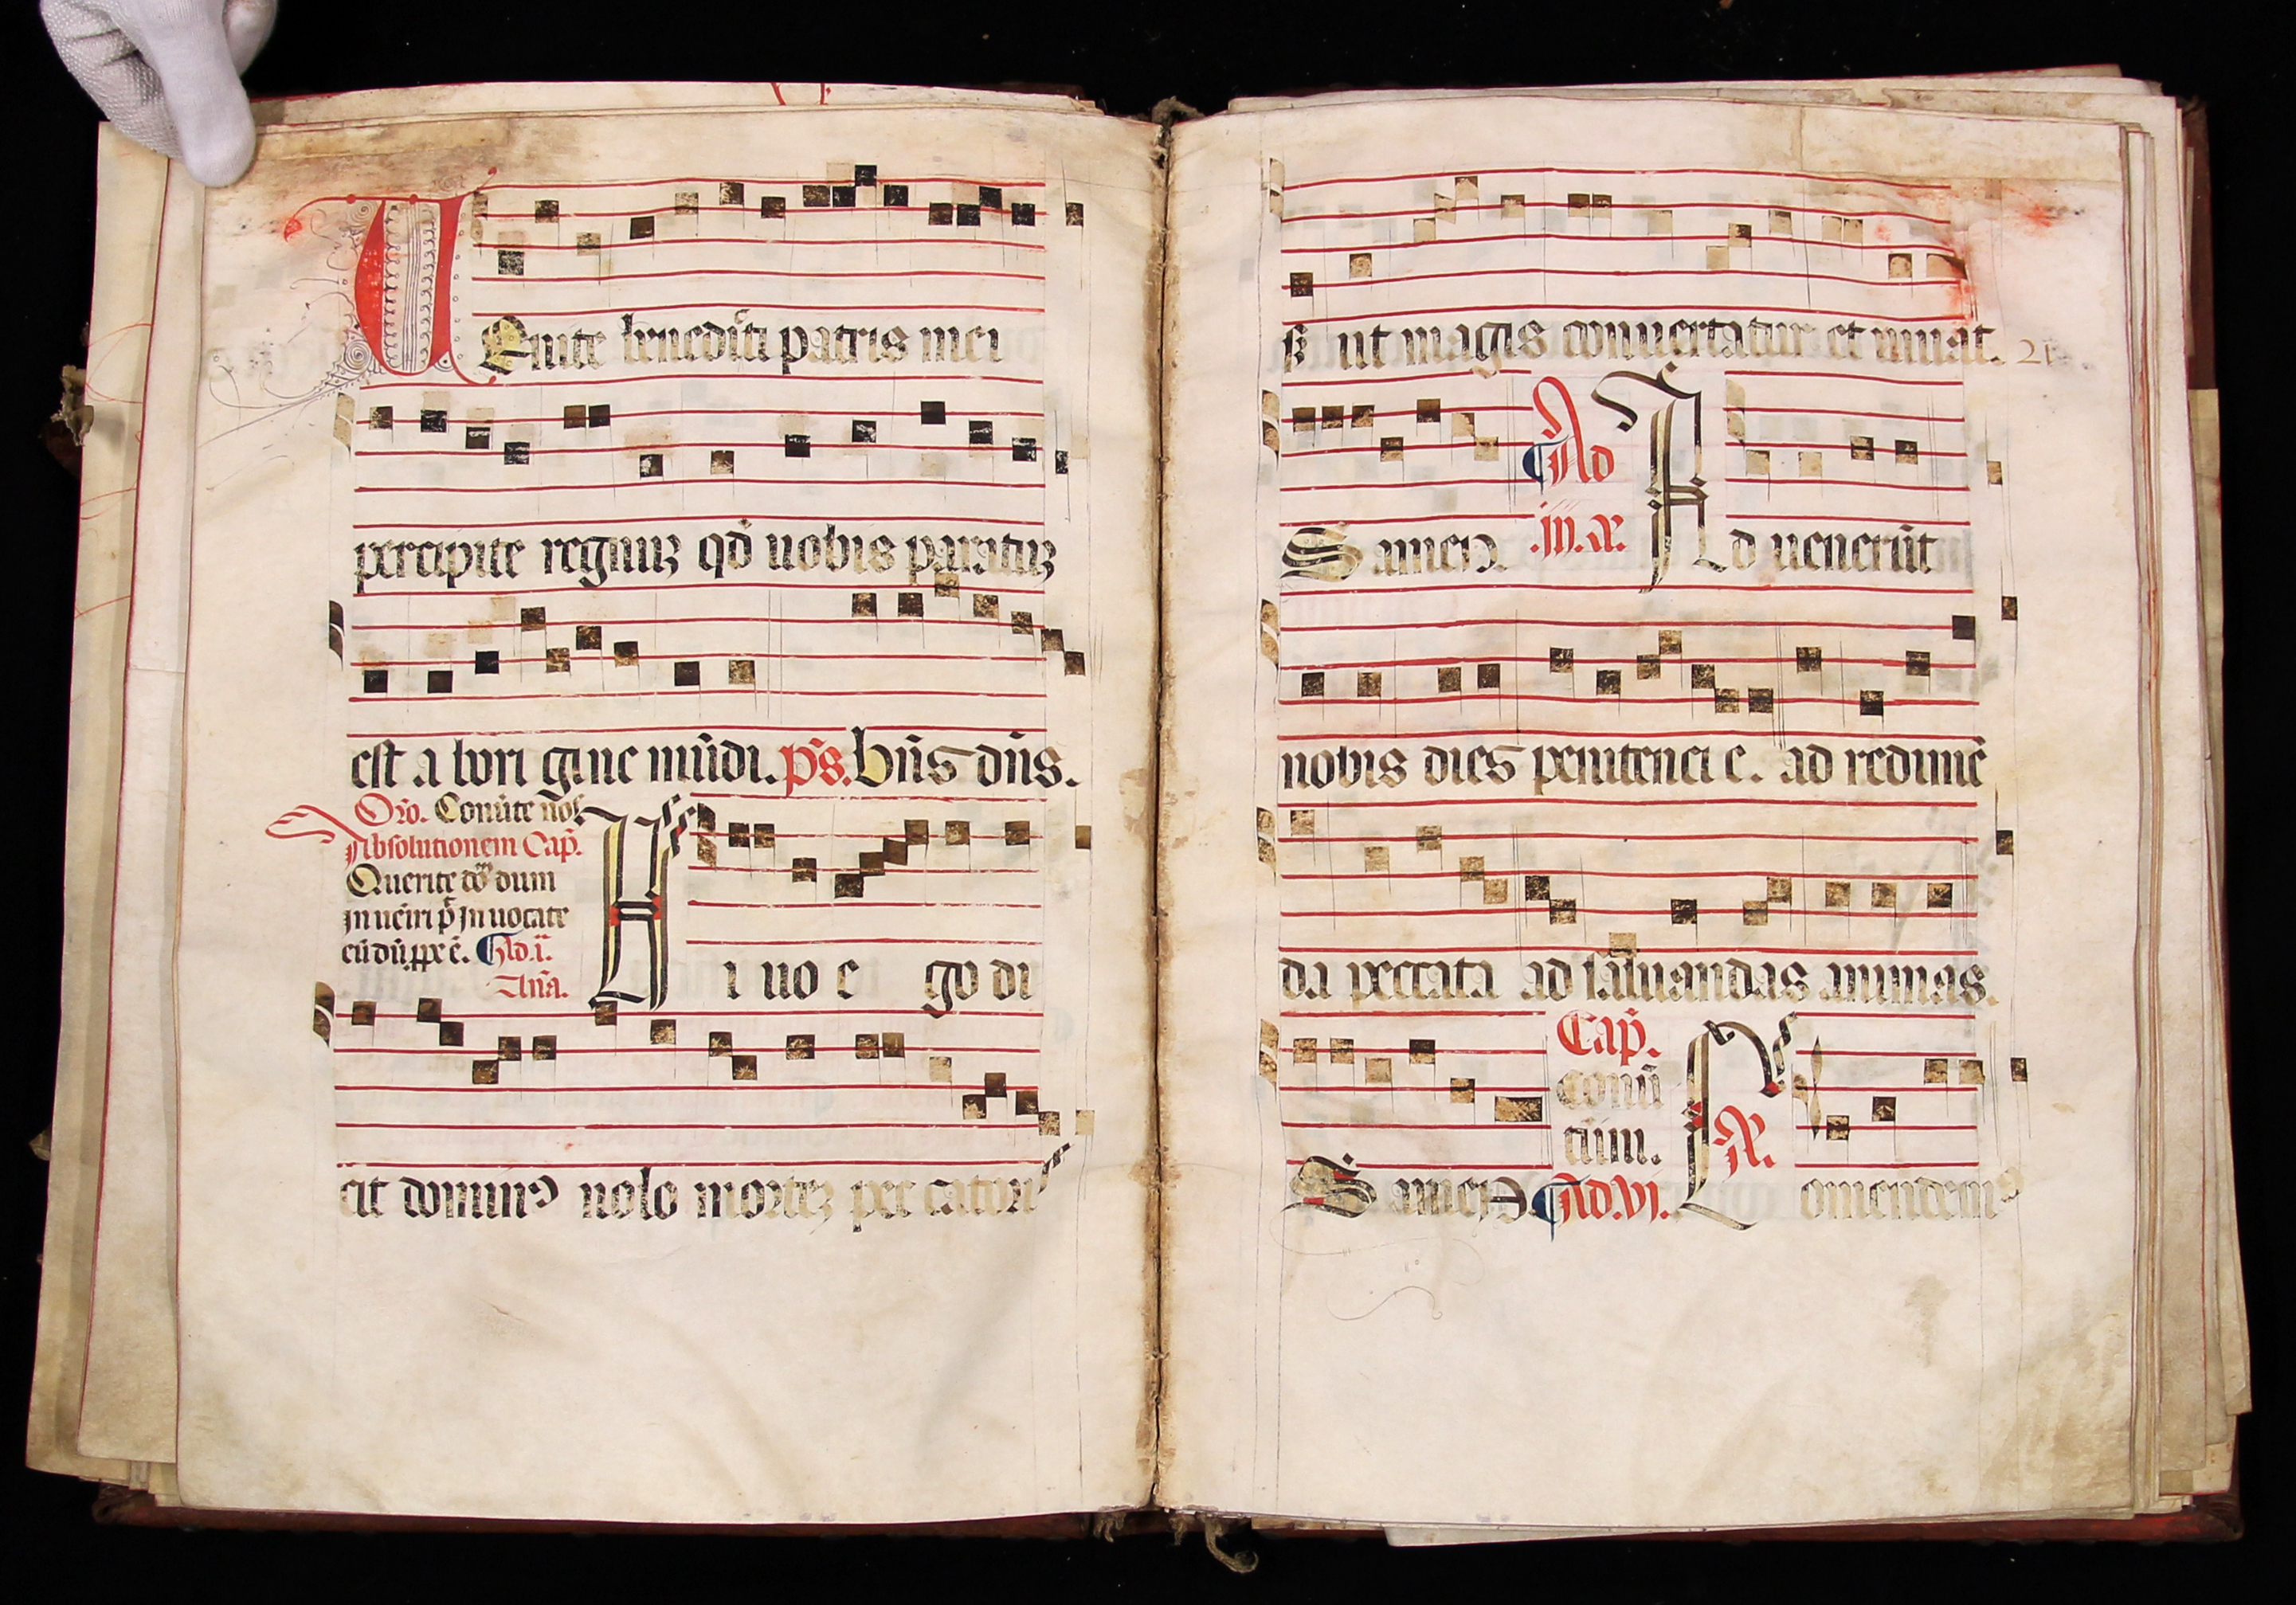 VEnite benedicti patris mei
percipite regnuz qd̄ uobis paratuz
est a bori gine mūdi. p̄s. bn̄s dn̄s.
Oro. Conūte nos
Absolutionem Cap̄.
Querite dom̄ dum
inueniri p̄ inuocate
eū dū ꝓpe ē. Ad .i.
Ana.
Ui uo e go di
cit dominꝰ nolo mortez pec catori
ꝫ ut magis conuertatur et uiuat. 21
S amen. Ad .iij. ℟. Ad uenerūt
nobis dies penitenci e. ad redimē
da peccata ad saluandas animas.
Cap̄.
conū
tim.
S amen. Ad .vi. ℟. Comendemꝰ